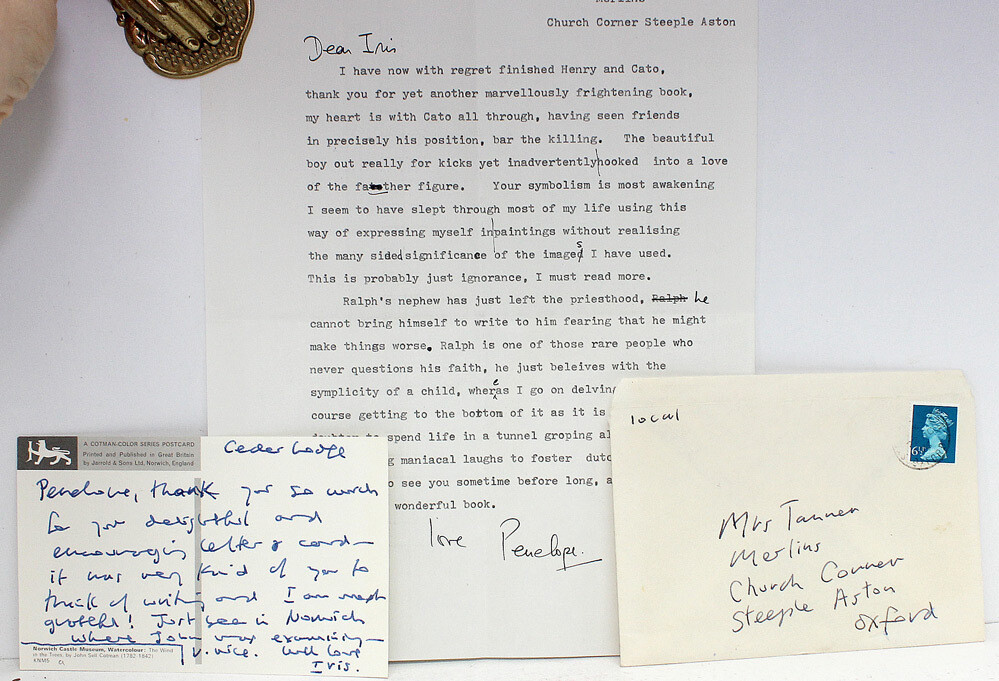 Church Corner Steeple Aston
Dear Iris
I have now with regret finished Henry and Cato,
thank you for yet another marvellously frightening book,
my heart is with Cato all through, having seen friends
in precisely his position, bar the killing. The beautiful
boy out really for kicks yet inadvertently hooked into a love
of the father figure. Your symbolism is most awakening
I seem to have slept through most of my life using this
way of expressing myself in paintings without realising
the many sided significance of the images I have used.
This is probably just ignorance, I must read more.
Ralph's nephew has just left the priesthood, Ralph he
cannot bring himself to write to him fearing that he might
make things worse. Ralph is one of those rare people who
never questions his faith, he just beleives with the
symplicity of a child, whereas I go on delving
course getting to the bottom of it as it is
spend life in a tunnel groping
maniacal laughs to foster
to see you sometime before long, a
wonderful book.
love Penelope.
A COTMAN-COLOR SERIES POSTCARD
Printed and Published in Great Britain
by Jarrold & Sons Ltd. Norwich, England
Cedar Lodge
Penelope, thank you so much
for your delightful and
encouraging letter & card –
it was very kind of you to
think of writing and I am most
grateful! Just been in Norwich
where John was examining –
v. nice. Much love
Iris.
Norwich Castle Museum, Watercolour: The Wind
in the Trees, by John Sell Cotman (1782-1842)
KNM5
local
6½P
Mrs Tanner
Merlins
Church Corner
Steeple Aston
Oxford